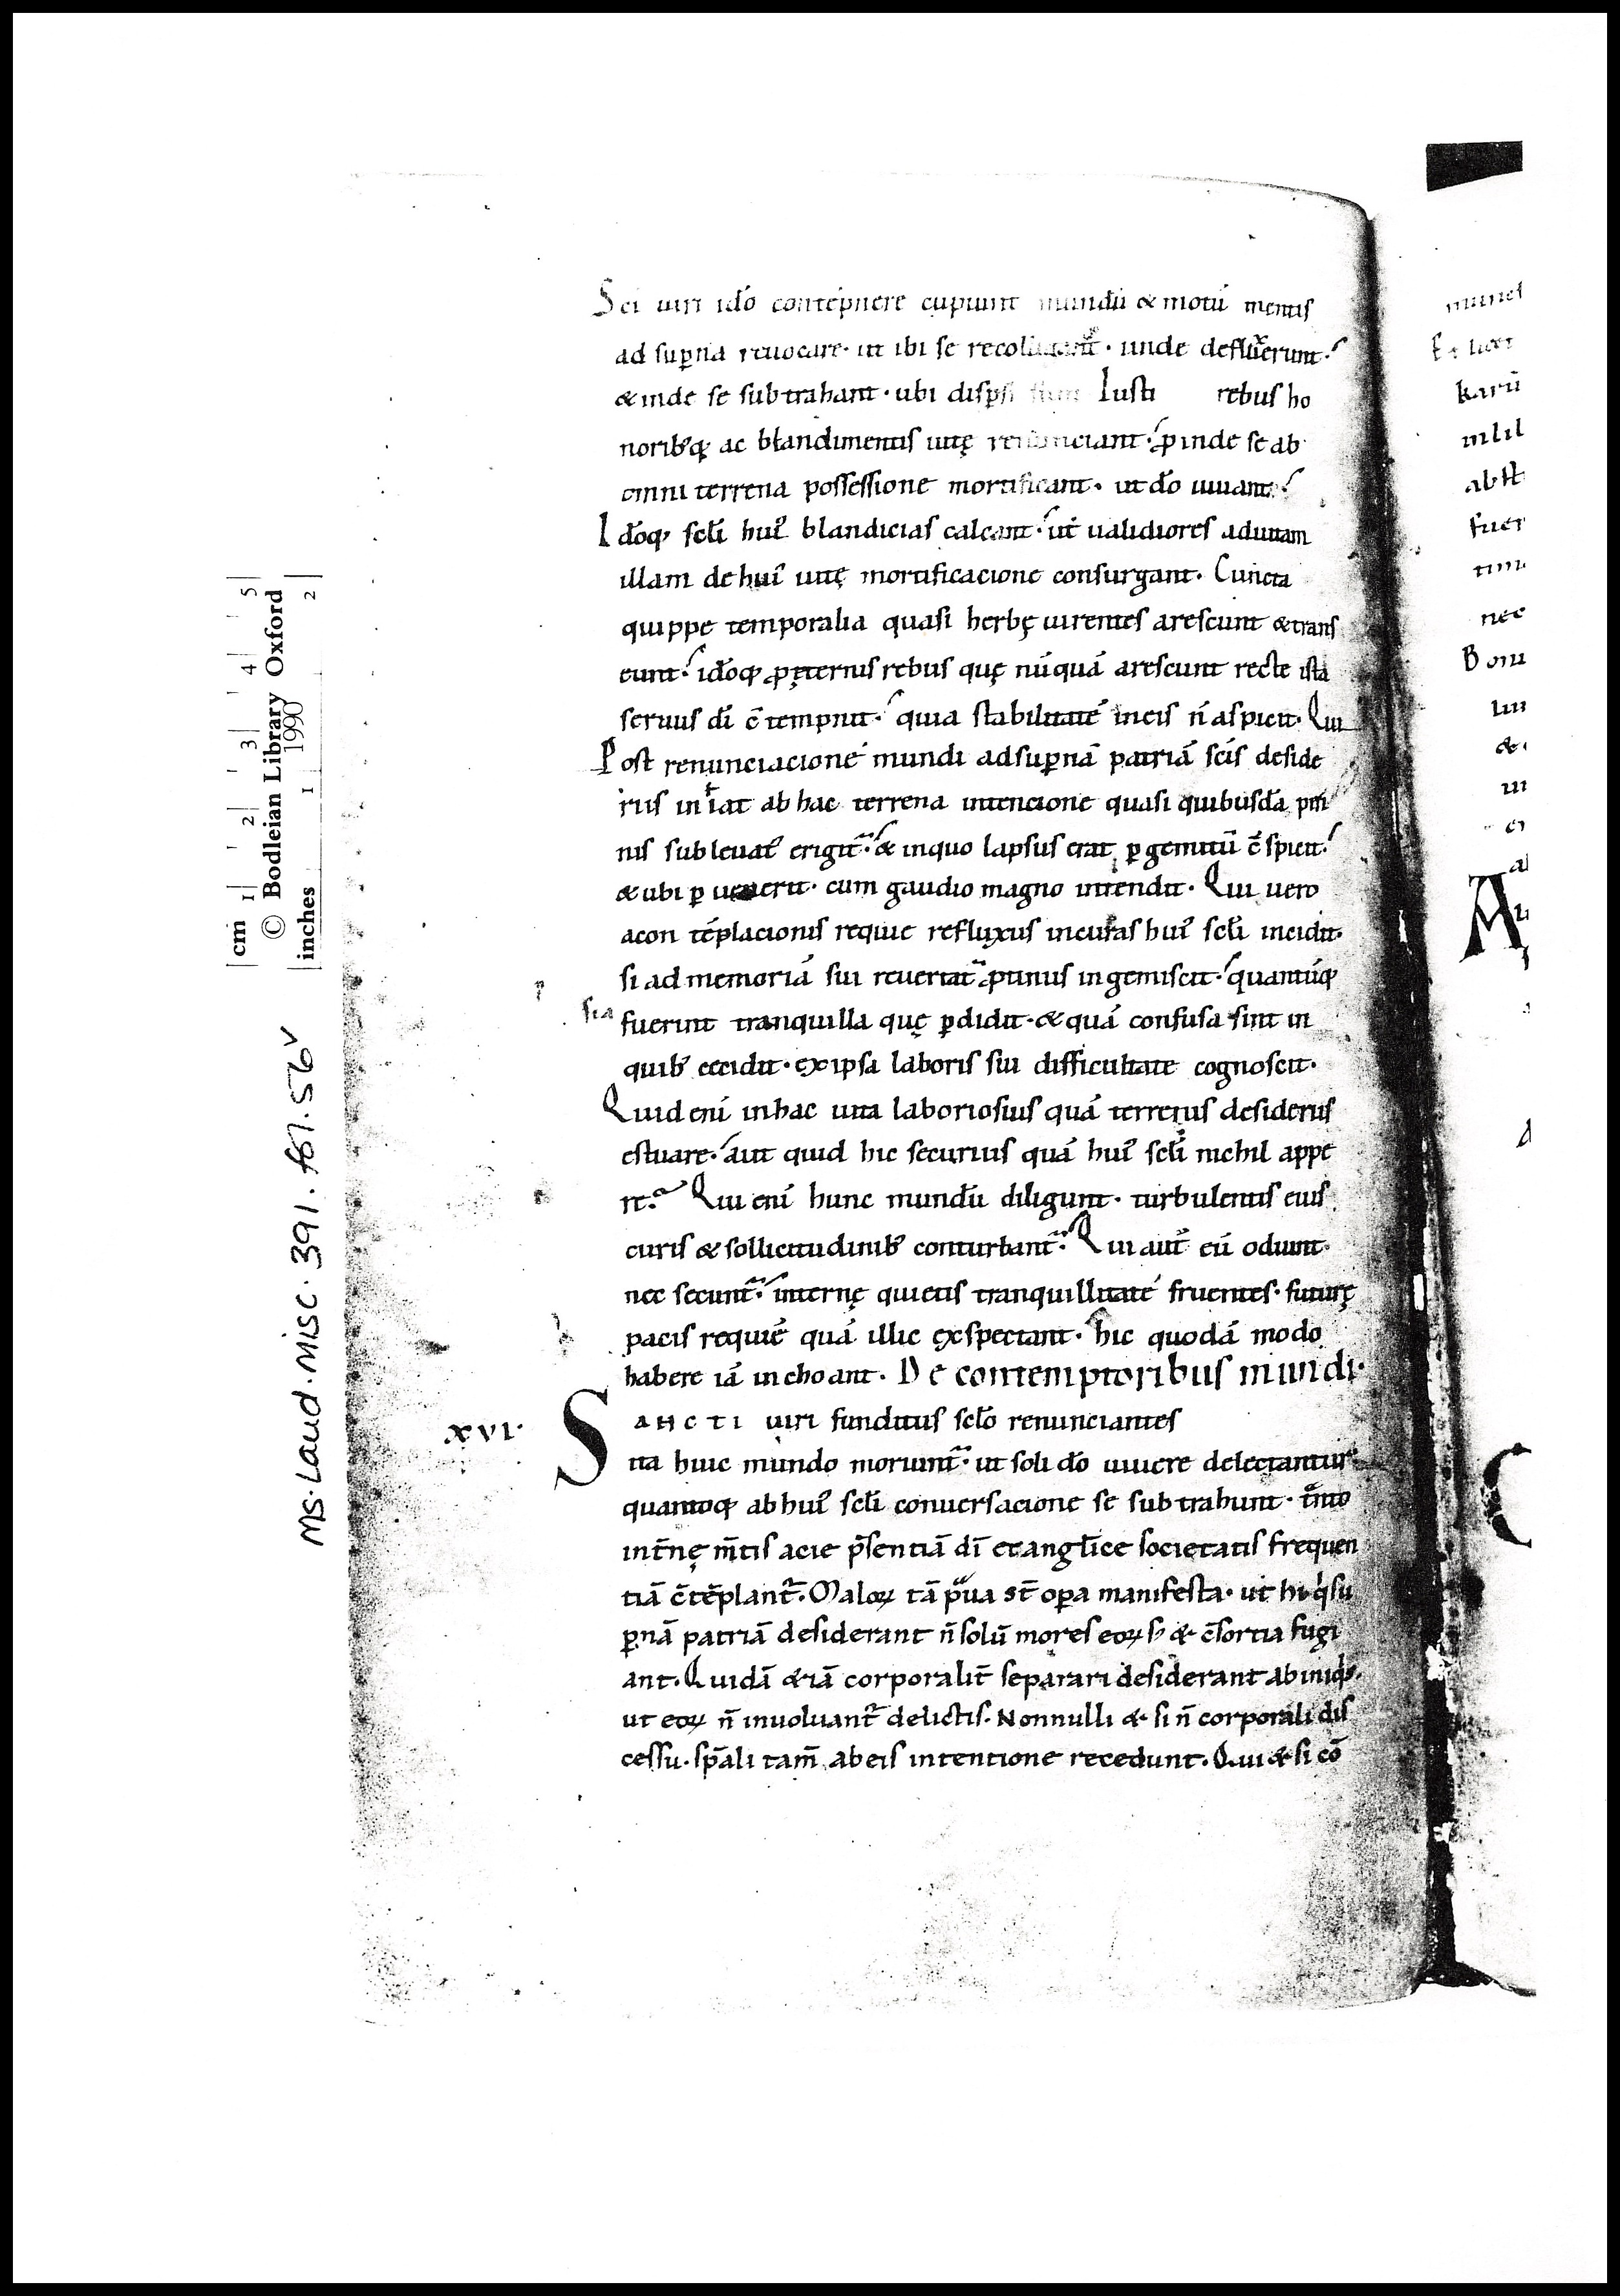 Sci uiri ido contēpnere cupiunt mundū & motū mentis
ad suꝑna reuocare· ut ibi se · unde defluxerunt·
& inde se subtrahant· ubi dispsi sunt Iusti rebus ho
norib'q; ac blandimentis uitę renunciant· ꝓinde se ab
omni terrena possessione mortificant· ut dō uiuant·
Idōq; scl̄i hui' blandicias calcant· ut ualidiores ad uitam
illam de hui' uitę mortificacione consurgant. Cuncta
quippe temporalia quasi herbę uirentes arescunt & trans
eunt· idōq; ꝓ ęternis rebus quę nūquā arescunt recte ista
seruus dī c̄tempnit· quia stabilitatē in eis n̄ aspicit. Qui
Post renunciacionē mundi ad suꝑnā patriā scīs deside
riis inhiat ab hac terrena intencione quasi quibusdā pin
nis subleuat' erigit̃· & in quo lapsus erat ꝑ gemitū c̄spicit·
& ubi ꝑuenerit· cum gaudio magno intendit. Qui uero
a con tēplacionis requie refluxus in curas hui' scl̄i incidit·
si ad memoriā sui reuertat̃ ꝓtinus ingemiscit· quantūq;
fuerint tranquilla quę ꝑdidit· & quā confusa sint in
quib' cecidit· ex ipsa laboris sui difficultate cognoscit·
Quid enī in hac uita laboriosius quā terrenis desideriis
estuare· aut quid hic securius quā hui' scl̄i nichil appe
re. Qui enī hunc mundū diligunt· turbulentis eius
curis & sollicitudinib' conturbant̃. Qui aut̄ eū odiunt·
nec secunt̃· internę quietis tranquillitatē fruentes· futurę
pacis requiē quā illic exspectant· hic quodā modo
habere iā inchoant. De contemptoribus mundi·
xvi·
Sancti uiri funditus sclō renunciantes
ita huic mundo moriunt̃· ut soli dō uiuere delectantur
quantoq; ab hui' scl̄i conuersacione se subtrahunt· t̄nto
int̄nę m̄tis acie p̄sentiā dī et anglice societatis frequen
tiā c̄tēplant̃. Maloꝝ tā p̄ua st̄ oꝑa manifesta· ut hi q̍ su
ꝑnā patriā desiderant n̄ solū mores eoꝝ s; & c̄sortia fugi
ant. Quidā &iā corporalit̄ separari desiderant ab iniq̍s·
ut eoꝝ n̄ inuoluant̃ delictis. Nonnulli & si n̄ corporali dis
cessu· sp̄ali tam̄ ab eis intentione recedunt. Qui & si cō
cm 1 2 3 4 5
© Bodleian Library Oxford
1990
inches 1 2
MS. Laud. Misc. 391. fol. 56v